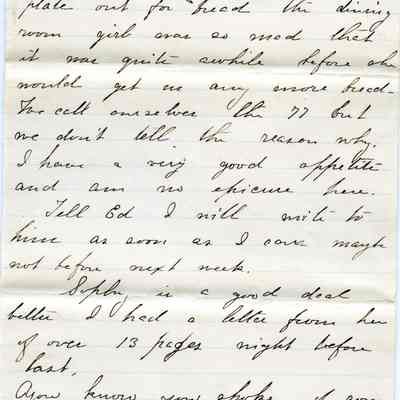 plate out for bread the dining
room girl was so mad that
it was quite awhile before she
would get us any more bread.
We call ourselves the 77 but
we don't tell the reason why.
I have a very good appetite
and am no epicure here.
Tell Ed I will write to
him as soon as I can maybe
not before next week.
Sophy is a good deal
better I had a letter from her
of over 13 pages night before
last.
You know you spoke of your